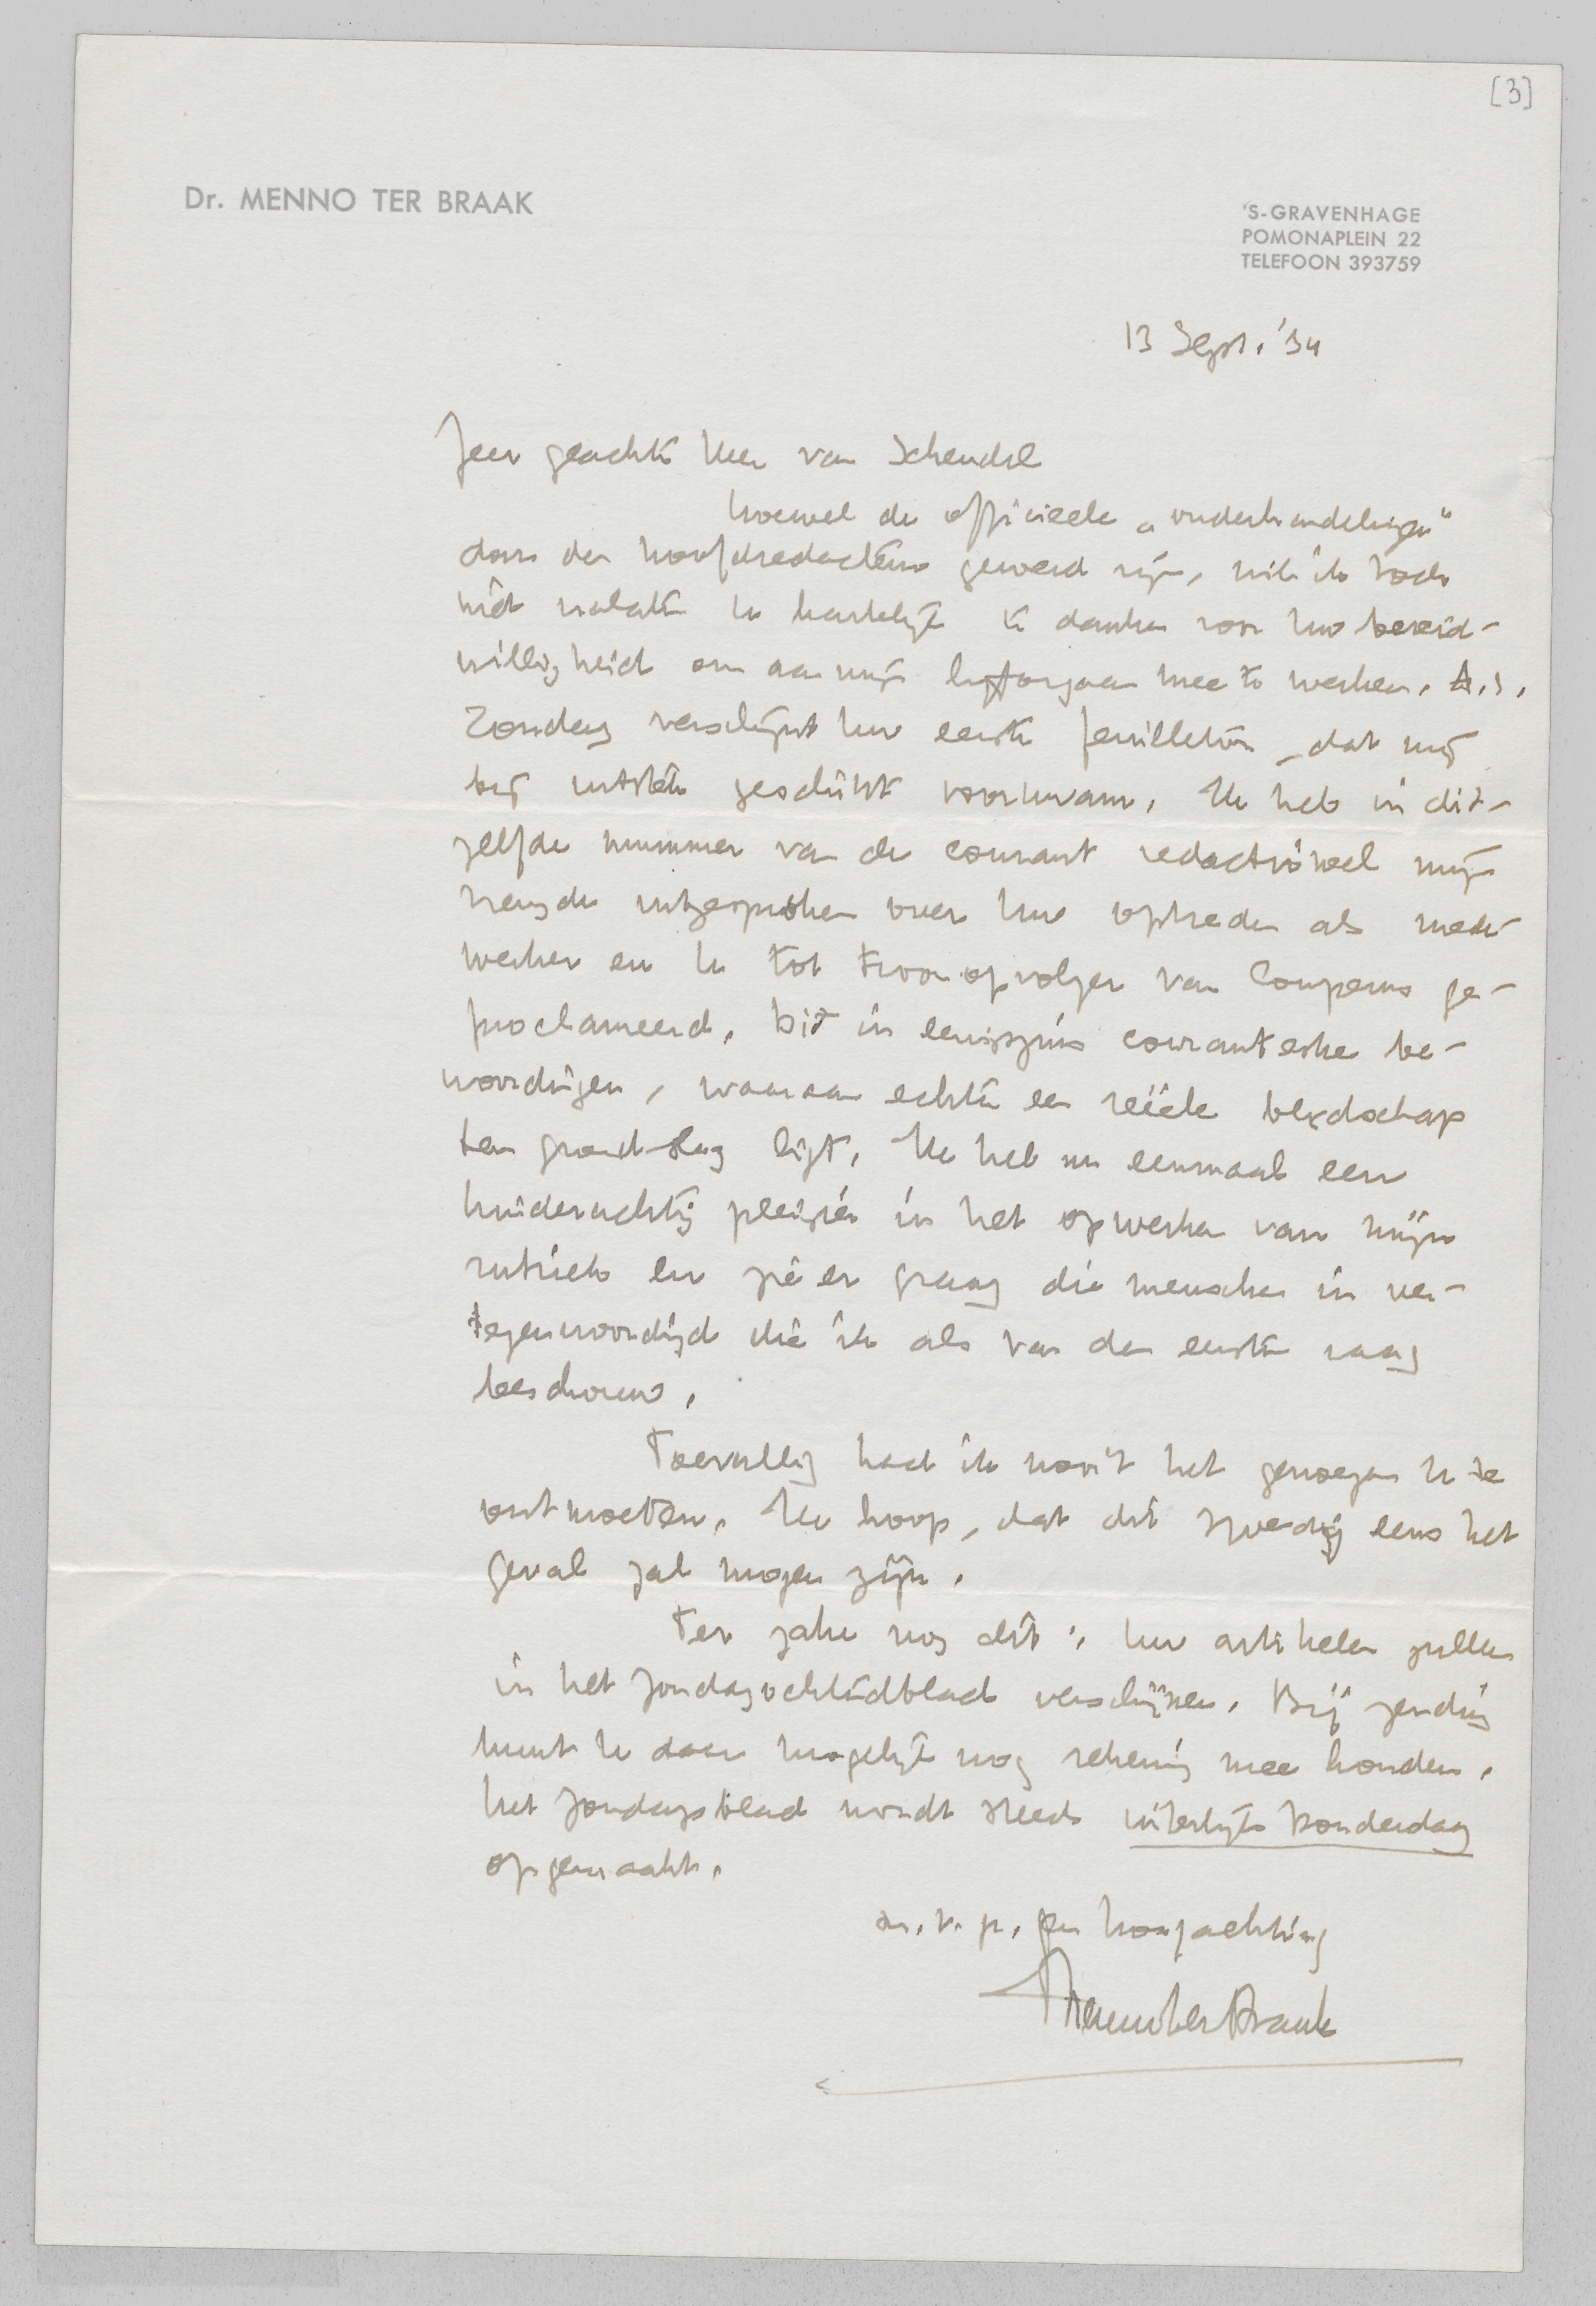 [3]
Dr. MENNO TER BRAAK
'S-GRAVENHAGE
POMONAPLEIN 22
TELEFOON 393759
13 Sept. '34
Zeer geachte Heer van Schendel
hoewel de officieele „onderhandelingen"
door den hoofdredacteur gevoerd zijn, wil ik toch
niet nalaten U hartelijk te danken voor Uw bereid-
willigheid om aan mijn lijforgaan mee te werken. A.s.
Zondag verschijnt Uw eerste feuilleton, dat mij
bij uitstek geschikt voorkwam. Ik heb in dit-
zelfde nummer van de courant redactioneel mijn
vreugde uitgesproken over Uw optreden als mede-
werker en U tot troonopvolger van Couperus ge-
proclameerd. Dit in eenigszins couranteske be-
woordingen, waaraan echter een reëele blijdschap
ten grondslag ligt. Ik heb nu eenmaal een
kinderachtig pleizier in het opwerken van mijn
rubriek en zie er graag die menschen in ver-
tegenwoordigd die ik als van den eersten rang
beschouw.
Toevallig had ik nooit het genoegen U te
ontmoeten. Ik hoop, dat dit spoedig eens het
geval zal mogen zijn.
Ter zake nog dit: Uw artikelen zullen
in het Zondagochtendblad verschijnen. Bij zending
kunt U daar mogelijk nog rekening mee houden.
Het Zondagsblad wordt steeds uiterlijk Donderdag
opgemaakt.
m. v. p. gen hoogachting
Menno ter Braak